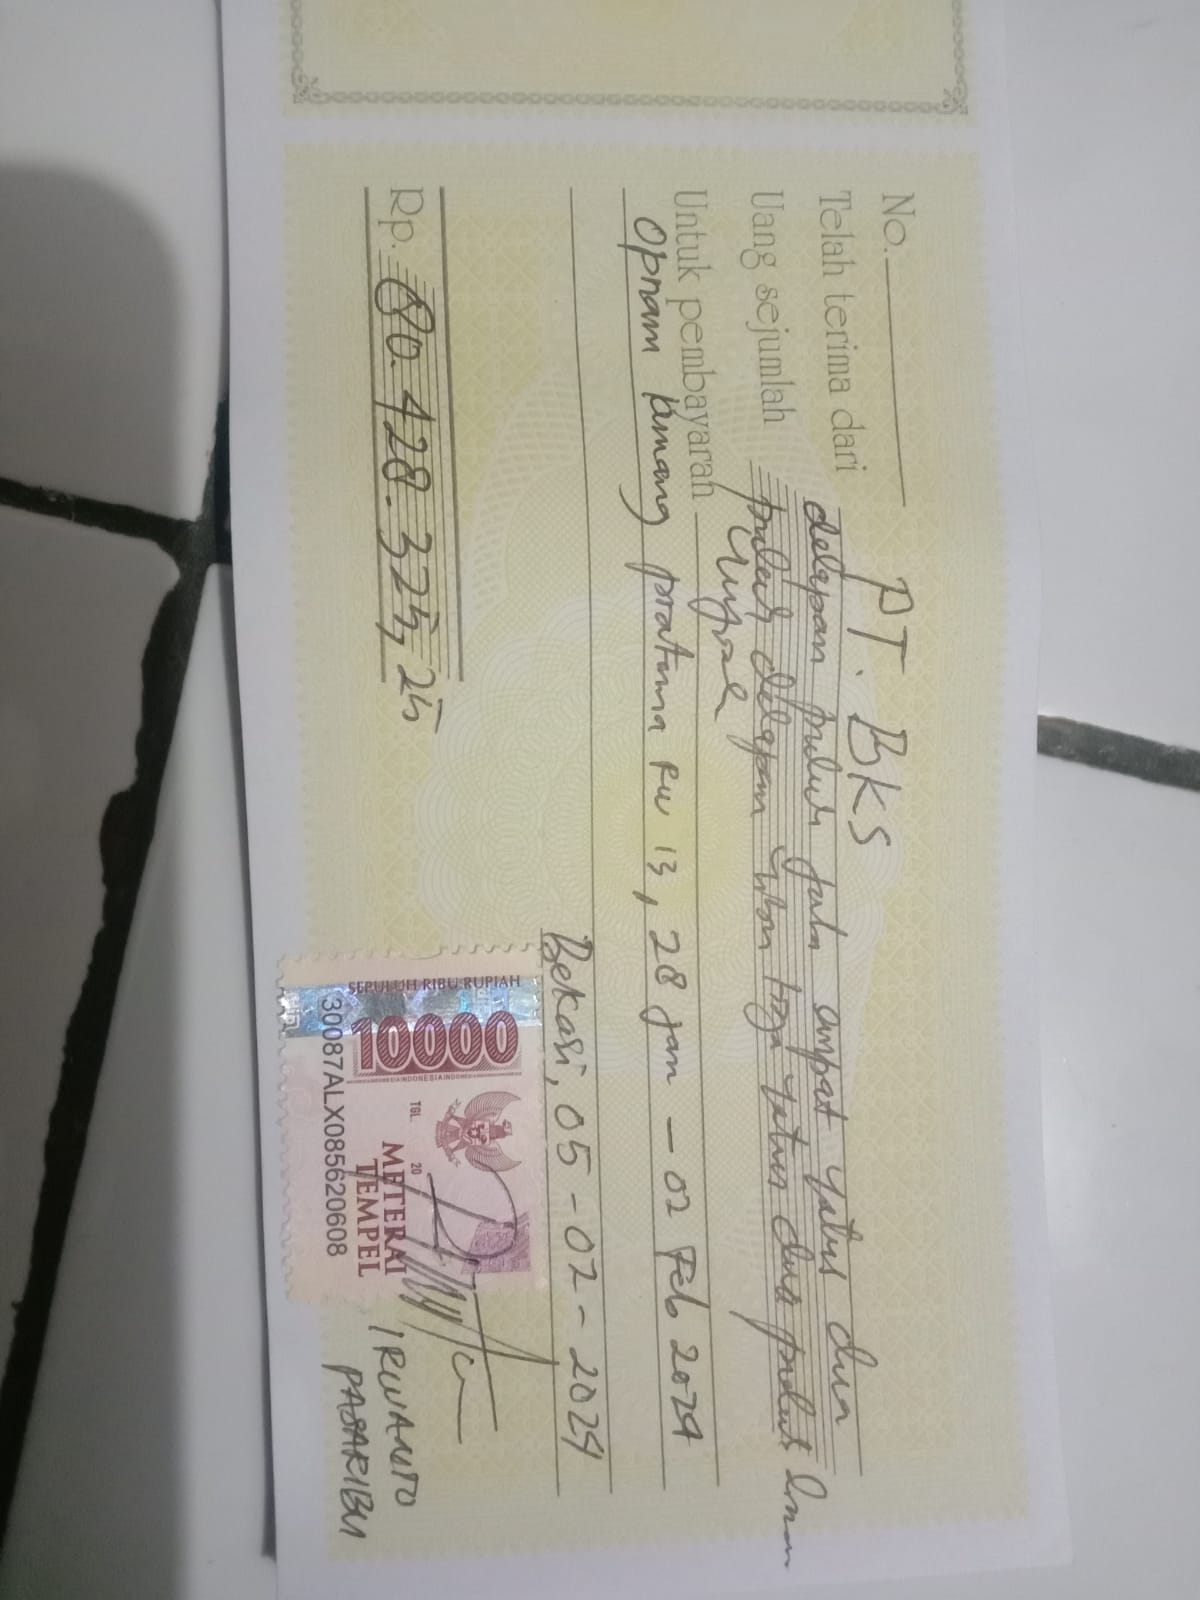 No.
Telah terima dari PT. BKS
Uang sejumlah delapan puluh juta ampat ratus dua
puluh delapan ribu tiga ratus dua puluh lima
rupiah
Untuk pembayaran
Opnam kmang pratama RW 13, 28 jan - 02 Feb 2024
Bekasi, 05-02-2024
Rp. 80.428.325,25
SEPULUH RIBU RUPIAH
10000
TGL. 20
METERAI
TEMPEL
30087ALX085620608
IRWANTO
PASARIBU